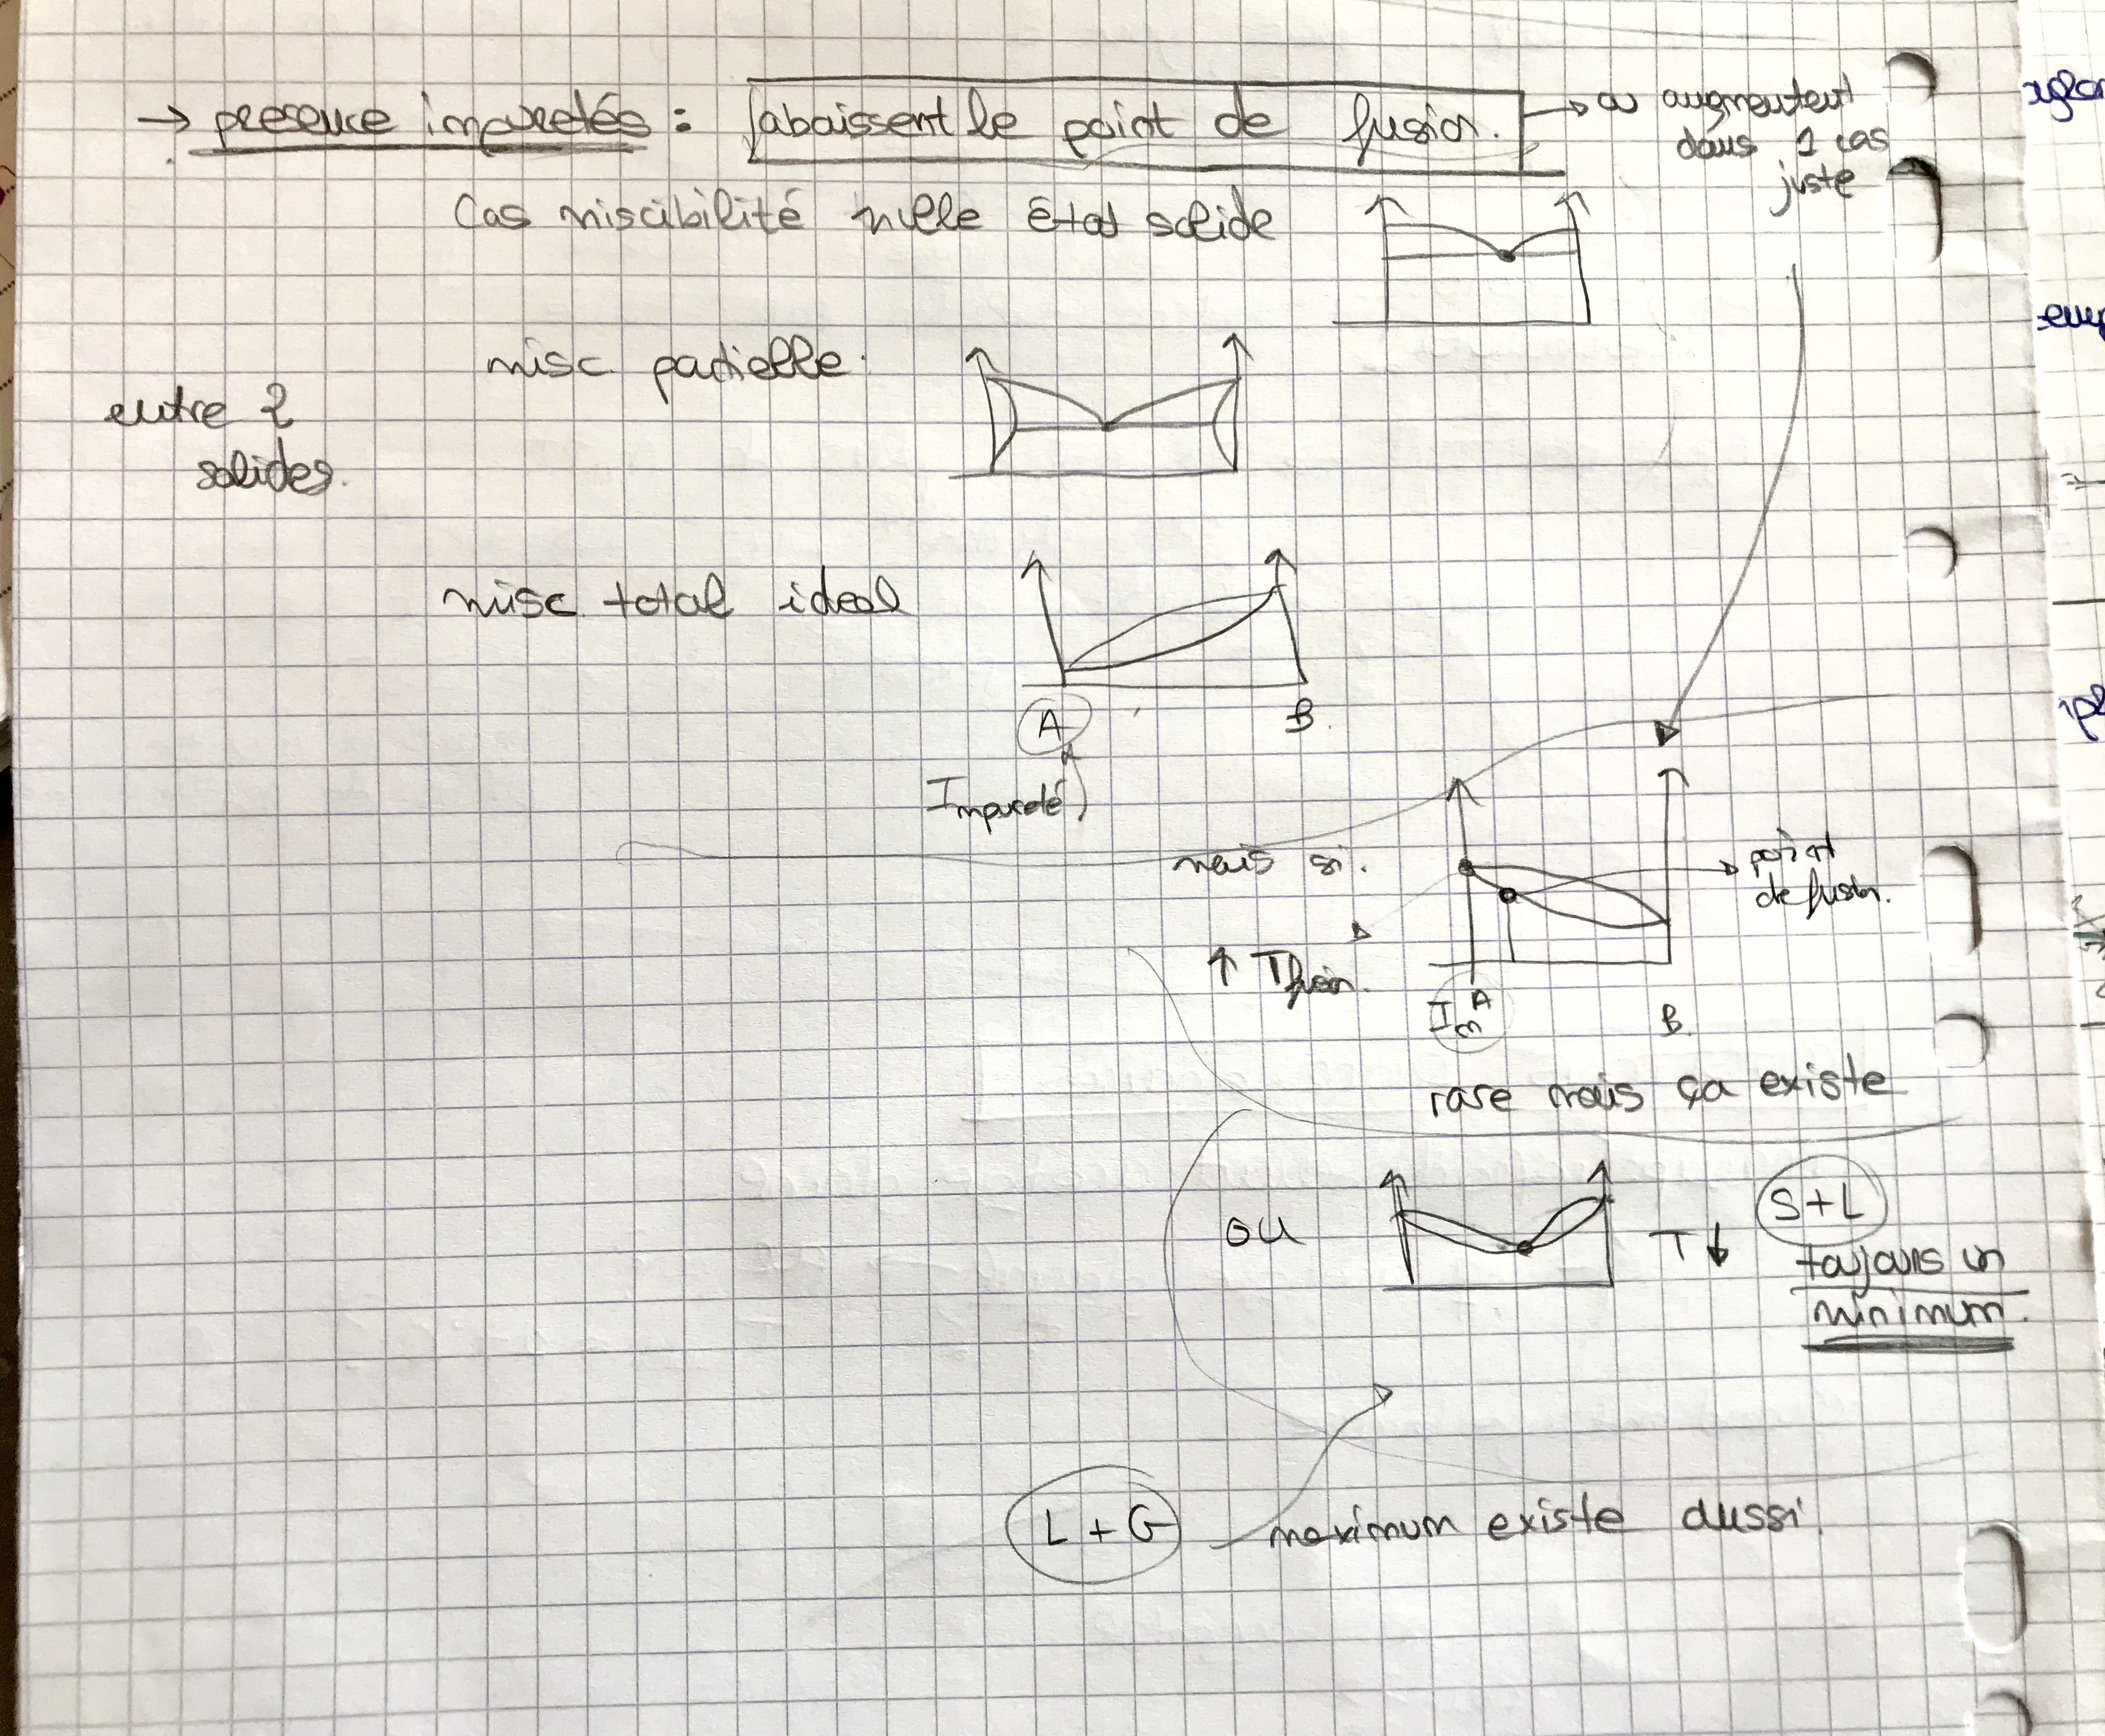 → presence impuretés : abaissent le point de fusion. → ou augmentent
dans 1 cas
juste
Cas miscibilité nulle état solide
misc partielle.
entre 2
solides.
misc total ideal
A B.
Impureté
mais si. point
de fusion.
↑ Tfusion.
Im A B.
rare mais ça existe
ou T↓ S+L
toujours un
minimum.
L + G maximum existe aussi.